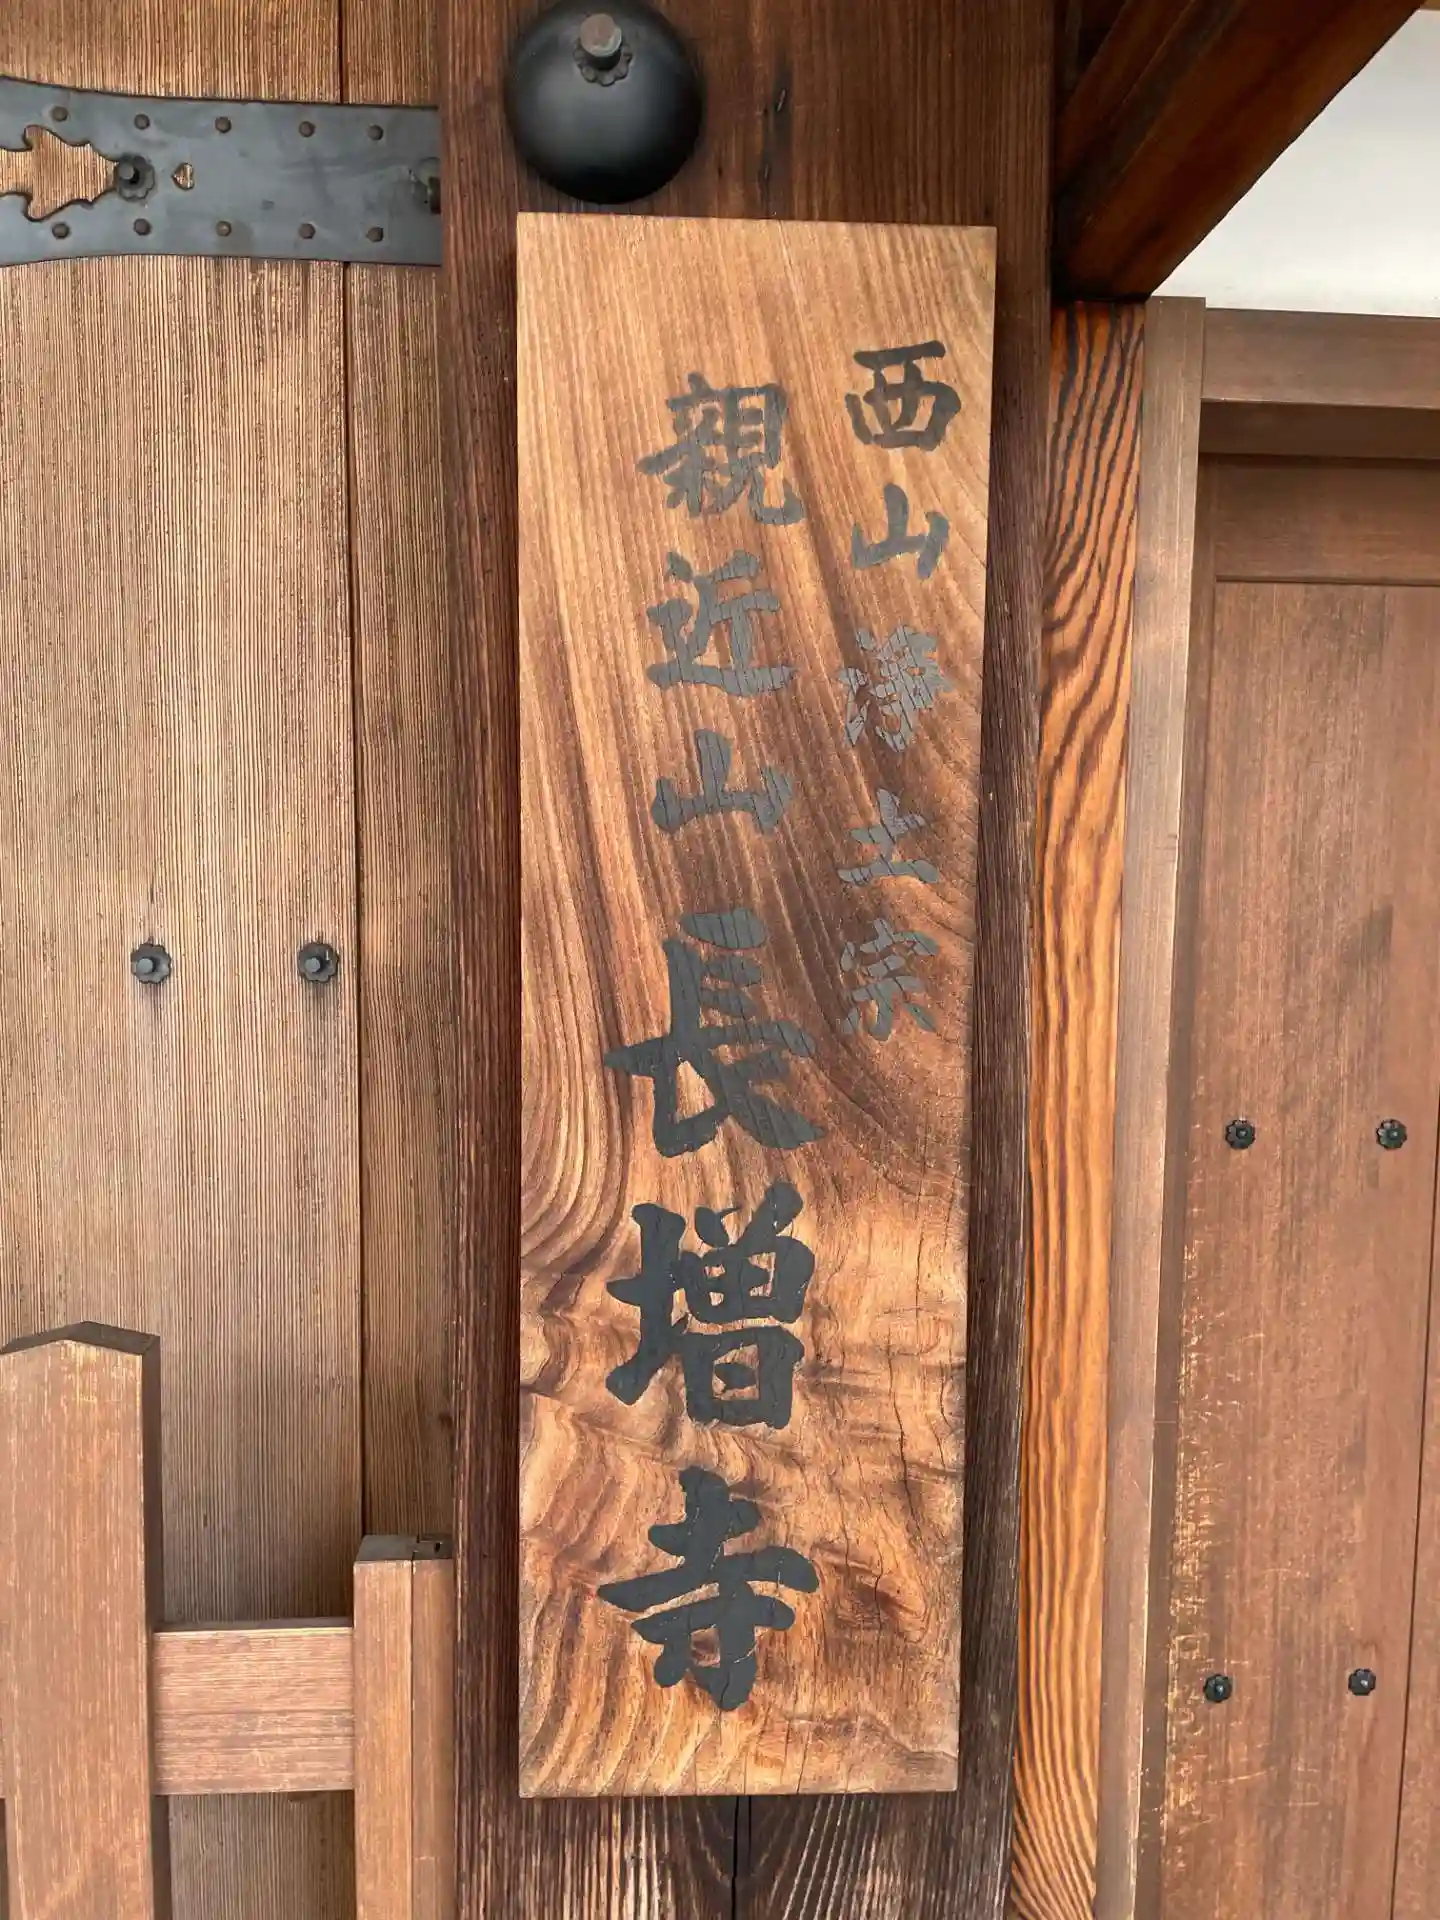 西山浄土宗
親近山長增寺